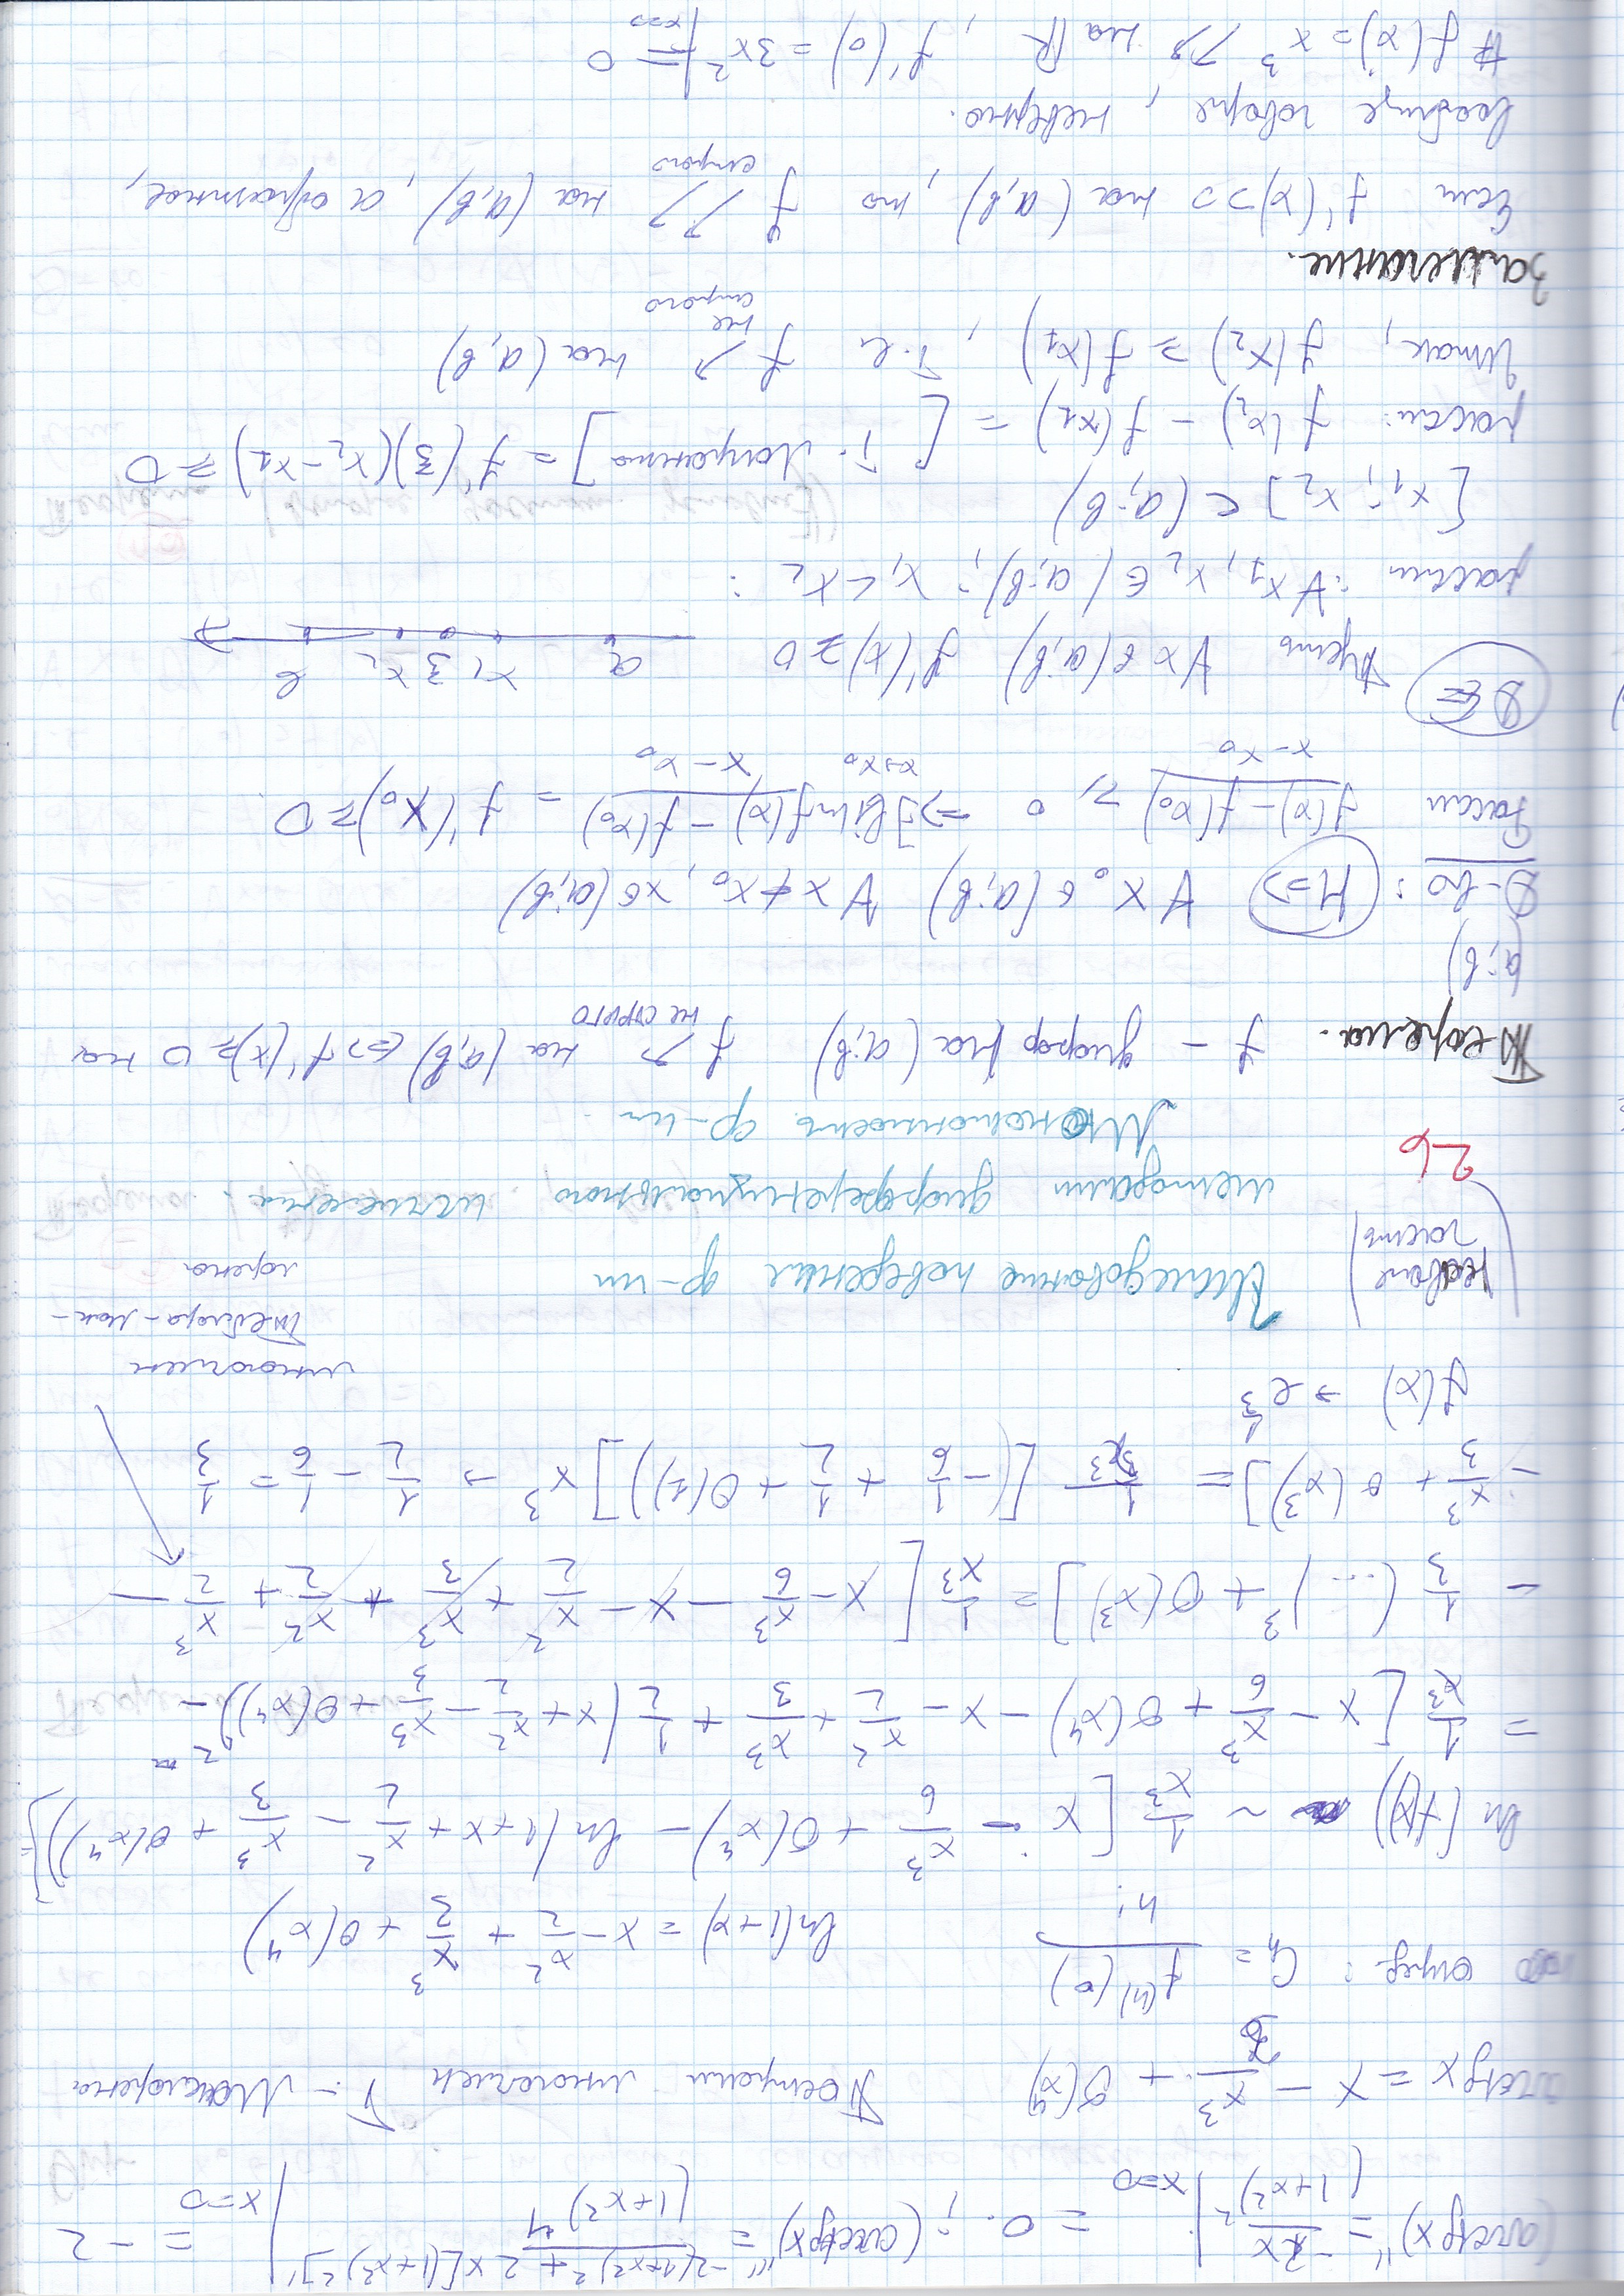 (arctg x)'' = -2x/(1+x²)² |x=0 = 0. ; (arctg x)''' = -2(1+x²)² + 2x[(1+x²)²]' / (1+x²)⁴ |x=0 = -2
arctg x = x - x³/3 + o(x⁴) Построим многочлен Т. - Маклорена
опред: Cₙ = f⁽ⁿ⁾(0)/n! ln(1+x) = x - x²/2 + x³/3 + o(x⁴)
ln(f(x)) ~ 1/x³ [x - x³/6 + o(x⁴) - ln(1+x+x²/2 - x³/3 + o(x⁴))] =
= 1/x³ [x - x³/6 + o(x⁴) - x - x²/2 + x³/3 + 1/2 (x + x²/2 - x³/3 + o(x⁴))² -
- 1/3 (...)³ + o(x³)] = 1/x³ [x - x³/6 - x - x²/2 + x³/3 + x²/2 + x³/2 -
- x³/3 + o(x³)] = 1/x³ [(-1/6 + 1/2 + o(1))] x³ → 1/2 - 1/6 = 1/3
f(x) → e^(1/3)
многочлен
Тейлора - Мак-
лорена
новая
часть
26
Исследование поведения ф-ии
методами дифференциального исчисления.
Монотонность ф-ии.
Теорема. f - дифф на (a;b) f ↗ не строго на (a;b) ⇔ f'(x) ≥ 0 на
(a;b)
Д-во: Н⇒ ∀ x₀ ∈ (a;b) ∀ x ≠ x₀, x ∈ (a;b)
Рассм (f(x) - f(x₀))/(x - x₀) ≥ 0 ⇒ ∃ lim x→x₀ (f(x) - f(x₀))/(x - x₀) = f'(x₀) ≥ 0.
Д⇐ Пусть ∀x ∈ (a;b) f'(x) ≥ 0 a x₁ ξ x₂ b
рассм: ∀ x₁, x₂ ∈ (a;b); x₁ < x₂ :
[x₁; x₂] ⊂ (a;b)
рассм: f(x₂) - f(x₁) = [т. Лагранжа] = f'(ξ)(x₂ - x₁) ≥ 0
Итак, f(x₂) ≥ f(x₁), т.е. f ↗ не строго на (a,b)
Замечание.
Если f'(x) > 0 на (a,b), то f ↗↗ строго на (a,b), а обратное,
вообще говоря, неверно.
# f(x) = x³ ↗↗ на ℝ, f'(0) = 3x² |x=0 = 0